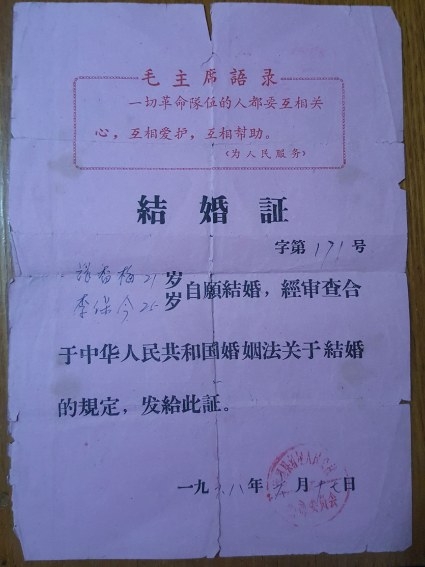 毛主席語录
一切革命隊伍的人都要互相关
心，互相爱护，互相幫助。
（为人民服务）
結婚証
字第171号
香梅21岁
李保今25岁
自願結婚，經审查合
于中华人民共和国婚姻法关于結婚
的規定，发給此証。
一九六八年 月 日